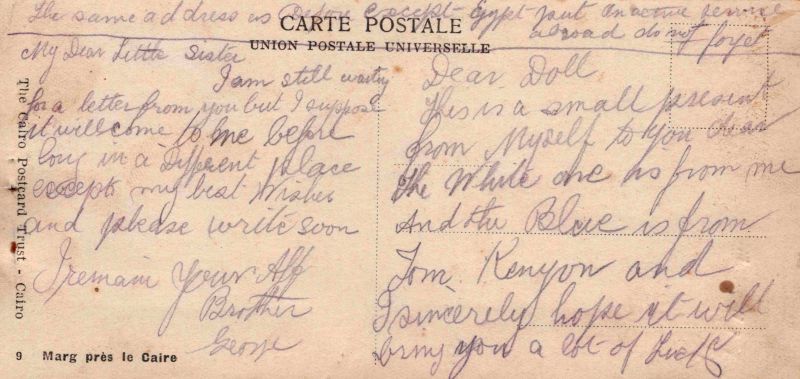 The same address as Before except Egypt put on active service
abroad do not forget
CARTE POSTALE
UNION POSTALE UNIVERSELLE
My Dear Little Sister
I am still waiting
for a letter from you but I suppose
it will come to me before
long in a Different place
except my best wishes
and please write soon
I remain Your Aff
Brother
George
Dear Doll
This is a small present
from Myself to you dear
The White one is from me
And the Blue is from
Tom Kenyon and
I sincerely hope it will
bring you a lot of Luck
The Cairo Postcard Trust - Cairo
9 Marg près le Caire